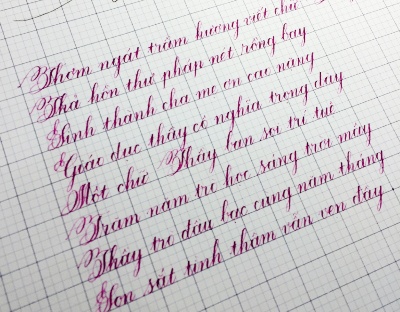 Thơm ngát trầm hương viết chữ
Thả hồn thư pháp nét rồng bay
Sinh thành cha mẹ ơn cao nặng
Giáo dục thầy cô nghĩa trọng dày
Một chữ Thầy ban soi trí tuệ
Trăm năm trò học sáng trời mây
Thầy trò dẫu bạc cùng năm tháng
Son sắt tình thâm vẫn vẹn đầy